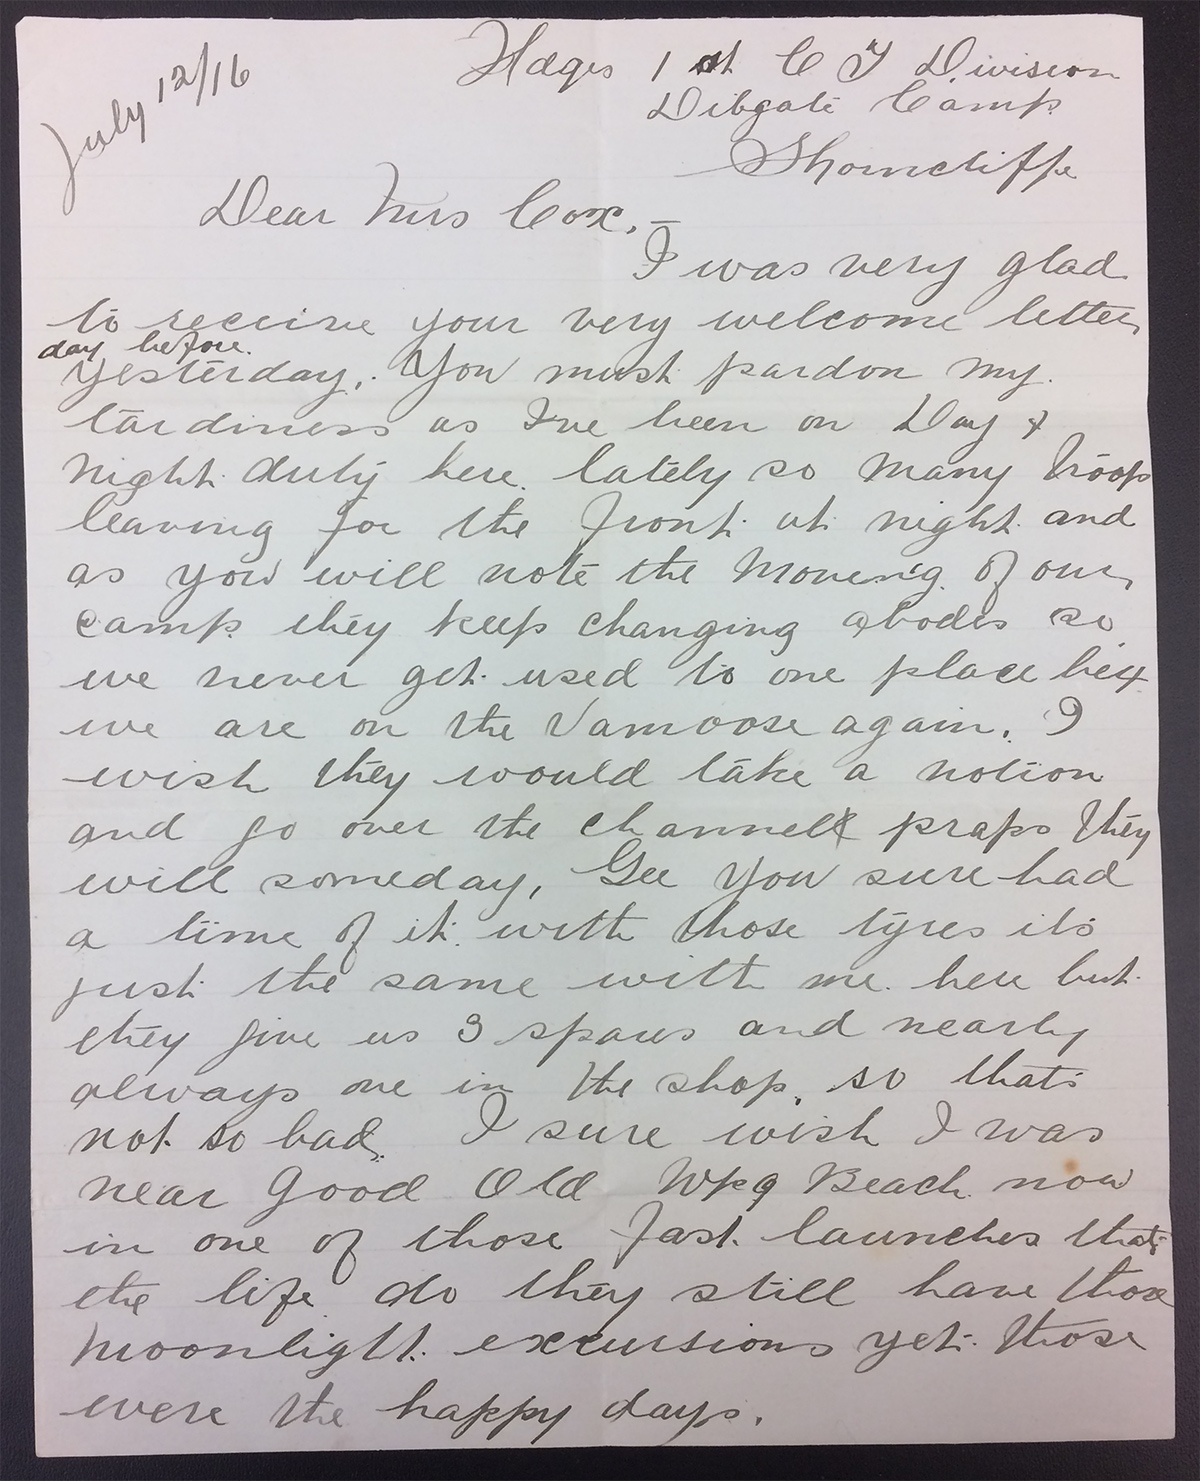 July 12/16
Hdqrs 1st C T Division
Dibgate Camp
Shorncliffe
Dear Mrs Cox, –
I was very glad
to receive your very welcome letter
day before.
yesterday,. You must pardon my.
tardiness as I've been on Day &
night duty here. lately so many troops
leaving for the front at night and
as you will note the moveing of our
camp they keep changing abodes so
we never get used to one place before
we are on the Vamoose again. I
wish they would take a notion
and go over the channel praps they
will someday, Gee you sure had
a time of it with those tyres its
just the same with me here but
they give us 3 spares and nearly
always one in the shop, so thats
not so bad. I sure wish I was
near Good Old Wpg Beach now
in one of those fast launches thats
the life do they still have those
moonlight excursions yet those
were the happy days.